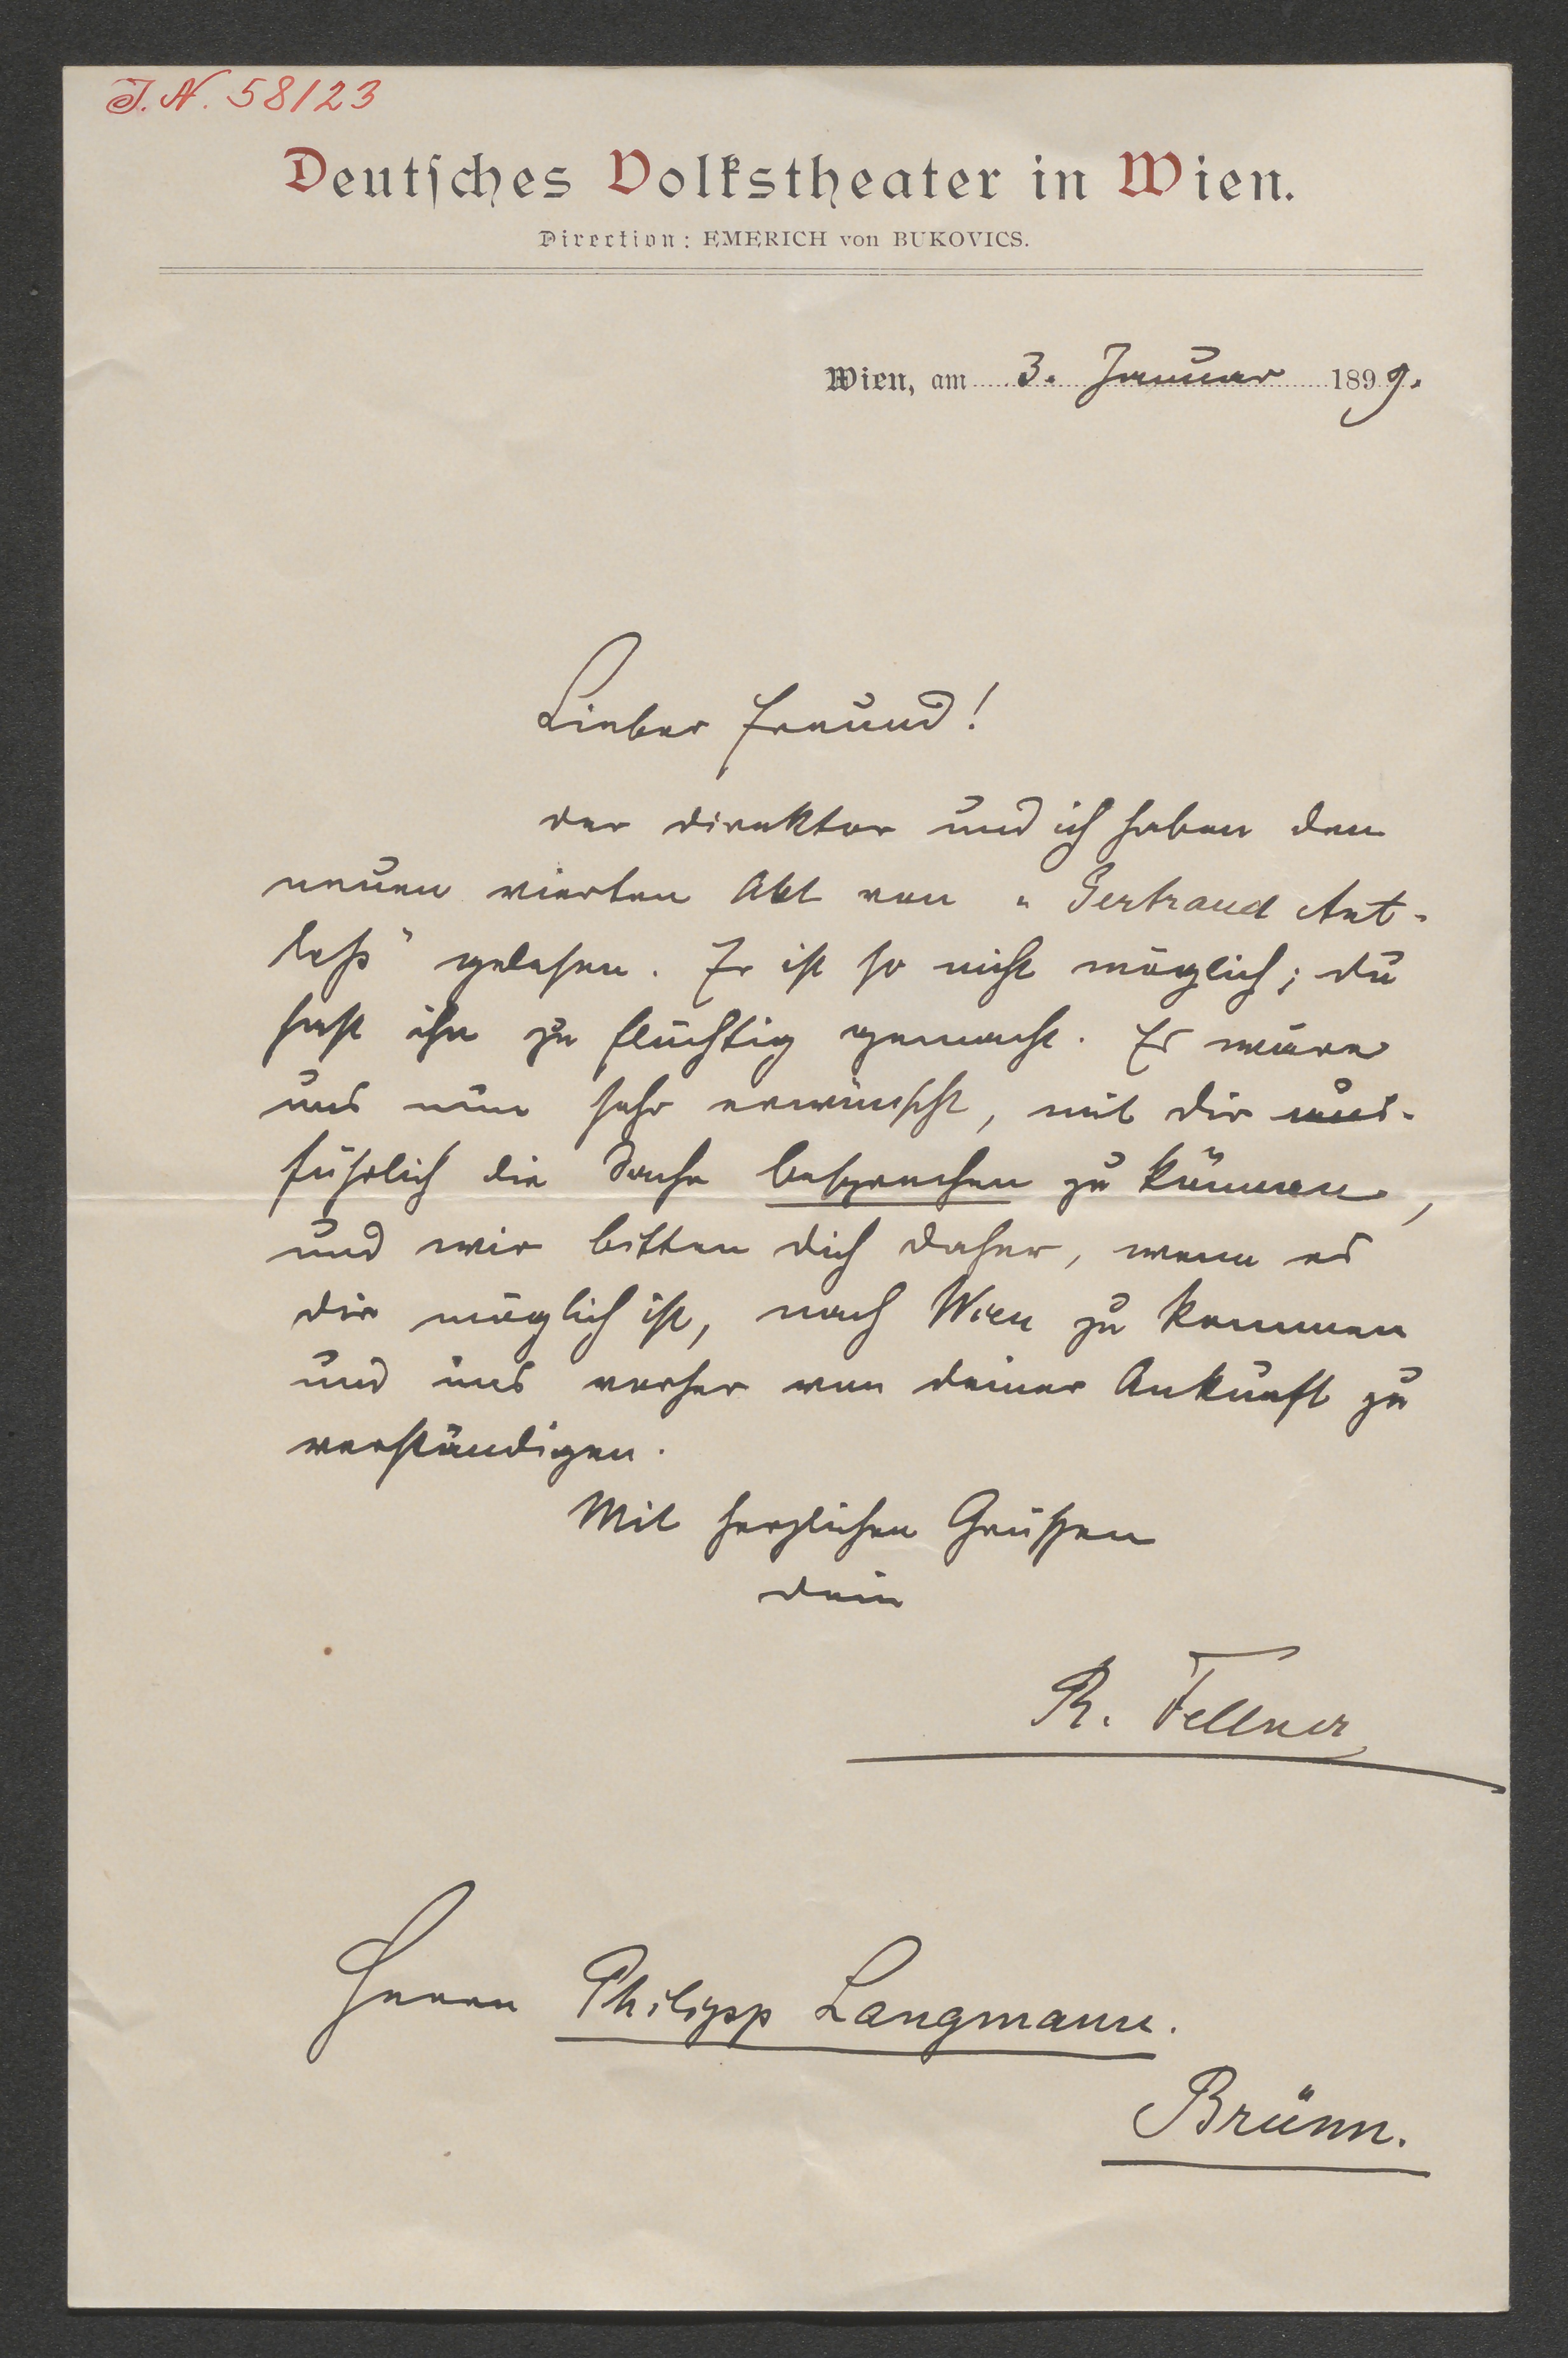 J. N. 58/23
Deutsches Volkstheater in Wien.
Direction: EMERICH von BUKOVICS.
Wien, am 3. Januar 1899.
Lieber Freund!
der direktor und ich haben den
neuen vierten Akt von „Gertraud Ant-
leß" gelesen. Er ist so nicht möglich; du
hast ihn zu flüchtig gemacht. Es wäre
uns nun sehr erwünscht, mit dir aus-
führlich die Sache besprechen zu können,
und wir bitten dich daher, wenn es
dir möglich ist, nach Wien zu kommen
und uns vorher von deiner Ankunft zu
verständigen.
Mit herzlichen Grüßen
dein
R. Fellner
Herrn Philipp Langmann.
Brünn.